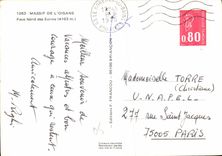 1063 MASSIF DE L'OISANS
Face Nord des Ecrins (4 102 m.)
Meilleur souvenir de
vacances alpestres et bon
courage à ceux qui restent.
Amicalement
0.80
Mademoiselle TORRE
U.N.A.P.E.L.
277 rue Saint Jacques
75005 PARIS